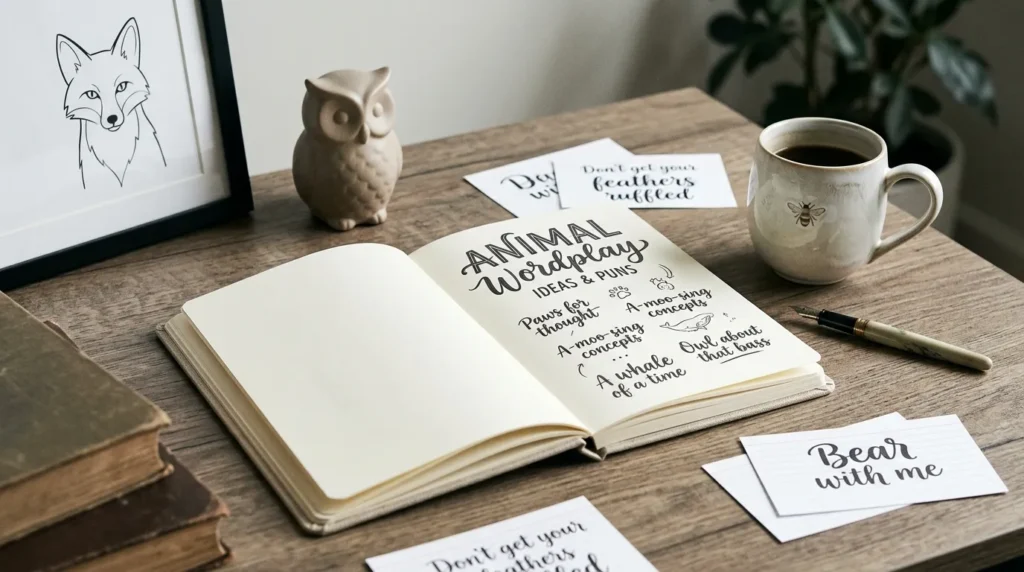 Don't get your
feathers
ruffled
ANIMAL
Wordplay
IDEAS & PUNS
Paws for
thought
A-moo-sing
concepts
A-moo-sing
concepts
...
Owl about
that bass
A whale
of a time
Bear
with me
Don't get your
feathers